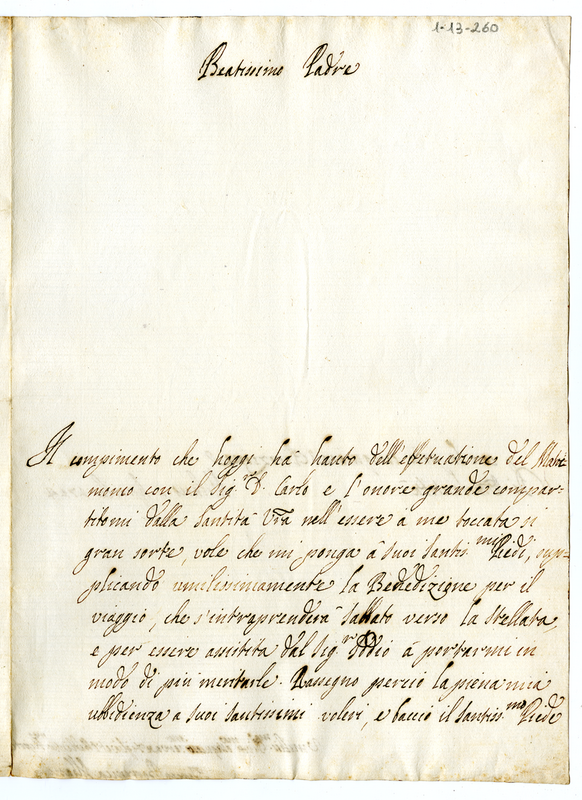 1-13-260
Beatissimo Padre
Il compimento che hoggi ha hauto dell'effetuatione del Matri
monio con il Sig.r D. Carlo e l'onore grande compar-
titomi dalla Santità Vra nell'essere a me toccata si
gran sorte, vole che mi ponga à suoi Santis.mi Piedi, sup-
plicando umilissimamente la Bededizione per il
viaggio, che s'intraprenderà sabbato verso la Stellata,
e per essere assistita dal Sig.r Iddio à portarmi in
modo di più meritarle. Rassegno perciò la piena mia
ubbidienza a suoi santissimi voleri, e baccio il santiss.mo Piede